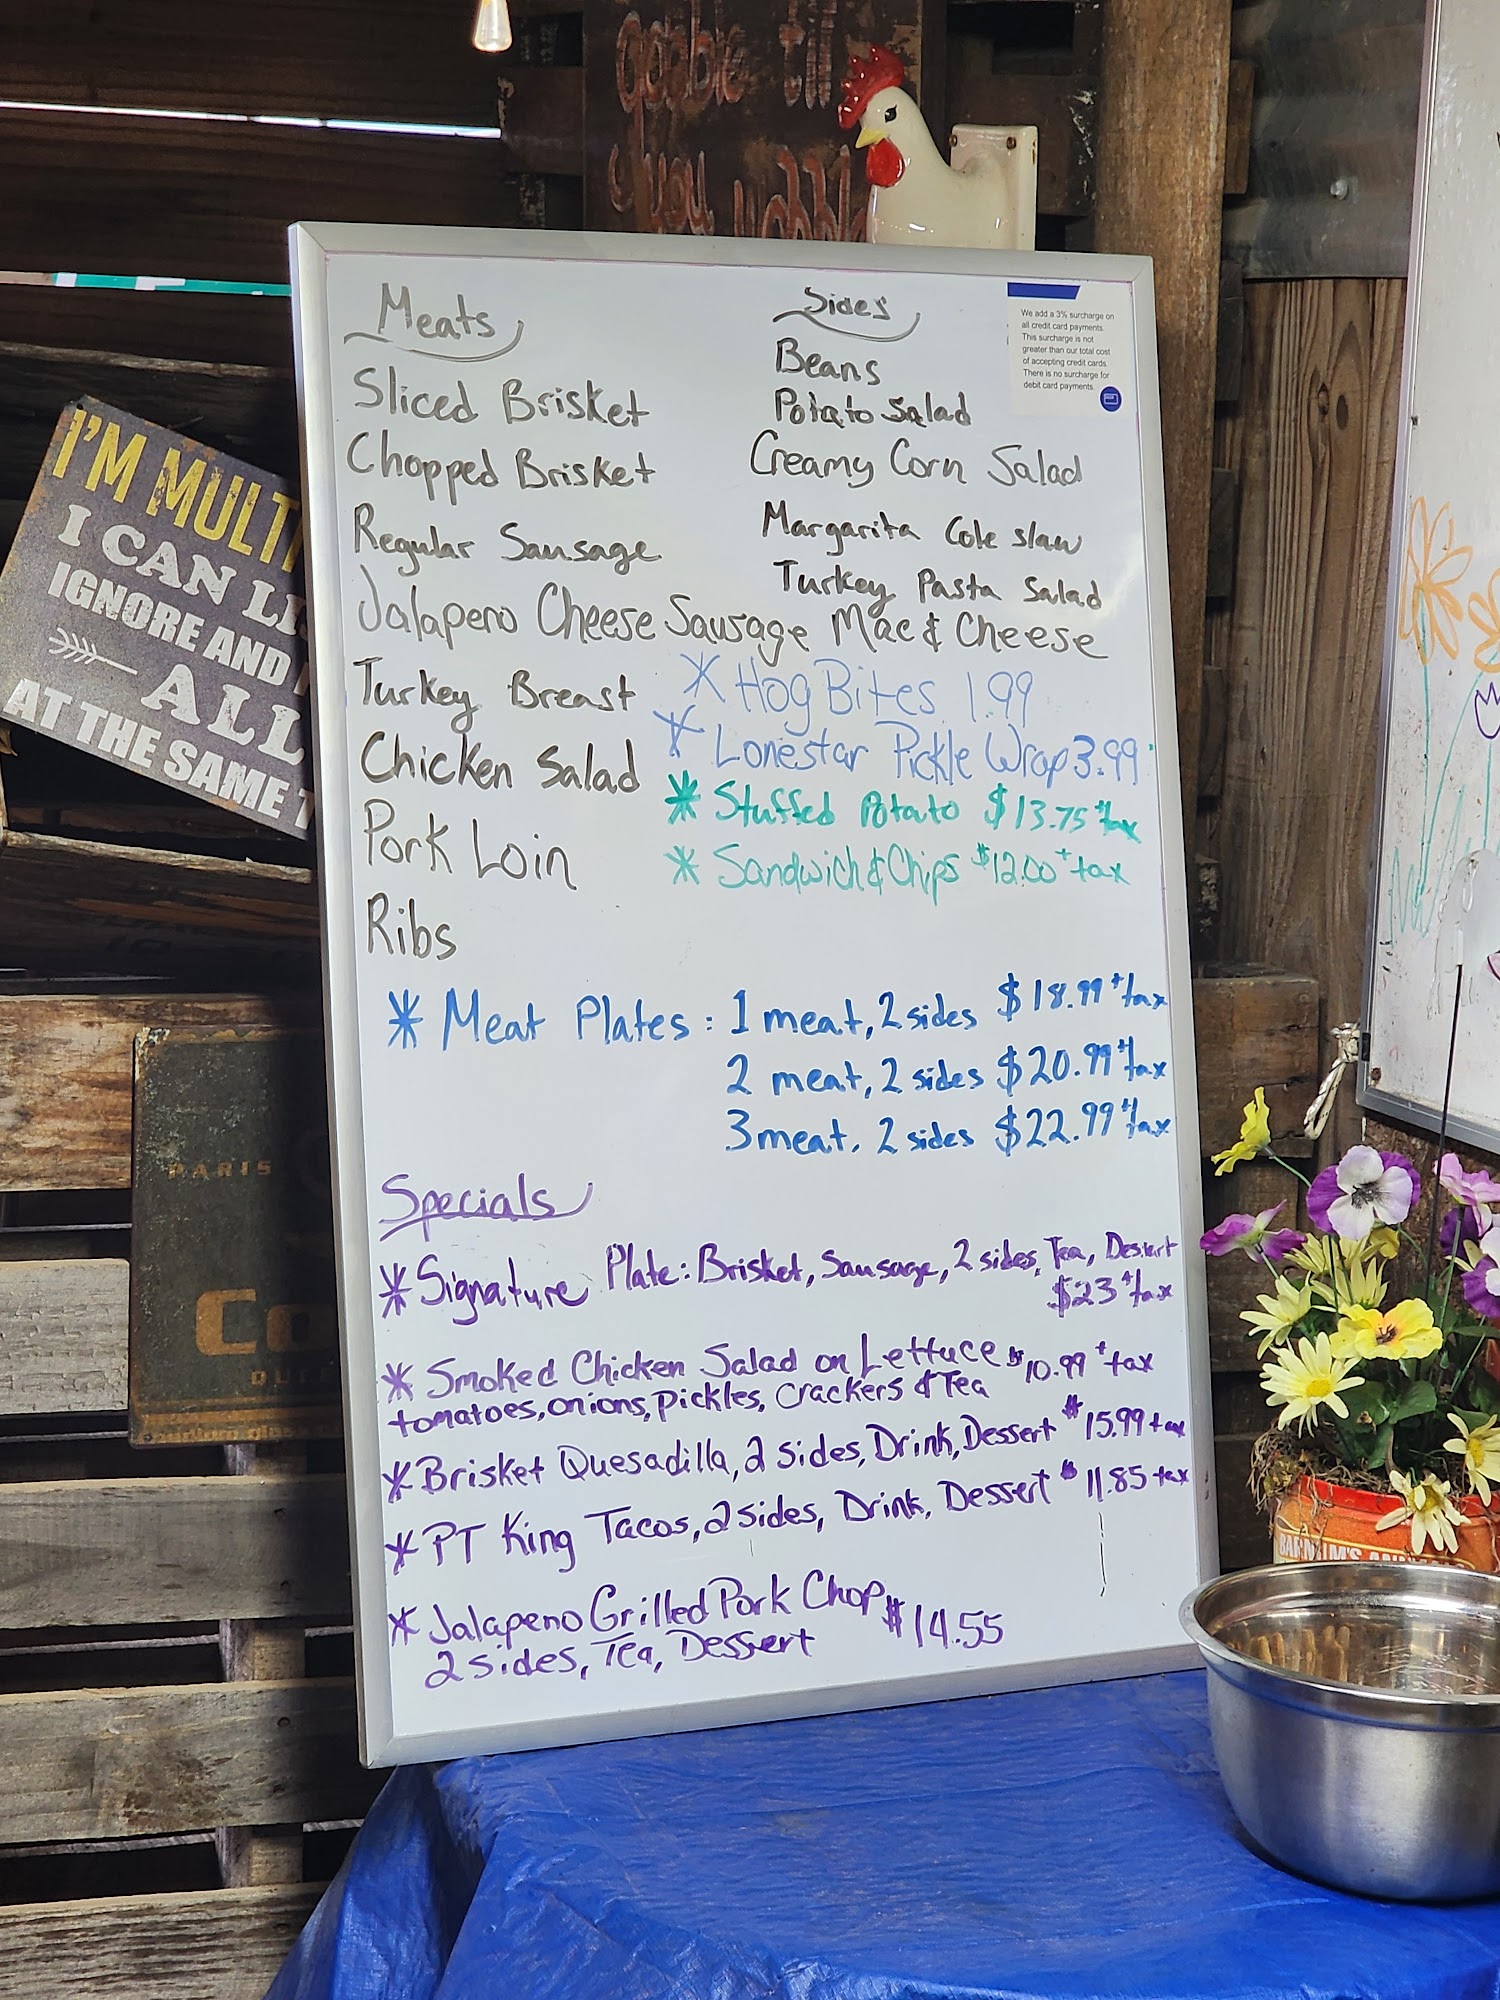 gobble till
you wobble
Meats
Sliced Brisket
Chopped Brisket
Regular Sausage
Jalapeno Cheese Sausage
Turkey Breast
Chicken Salad
Pork Loin
Ribs
Sides
Beans
Potato Salad
Creamy Corn Salad
Margarita Cole slaw
Turkey Pasta Salad
Mac & Cheese
We add a 3% surcharge on
all credit card payments.
This surcharge is not
greater than our total cost
of accepting credit cards.
There is no surcharge for
debit card payments.
* Hog Bites 1.99
* Lonestar Pickle Wrap 3.99
* Stuffed Potato $13.75 + tax
* Sandwich & Chips $12.00 + tax
* Meat Plates: 1 meat, 2 sides $18.99 + tax
2 meat, 2 sides $20.99 + tax
3 meat, 2 sides $22.99 + tax
Specials
* Signature Plate: Brisket, Sausage, 2 sides, Tea, Dessert
$23 + tax
* Smoked Chicken Salad on Lettuce $10.99 + tax
tomatoes, onions, pickles, crackers & Tea
* Brisket Quesadilla, 2 sides, Drink, Dessert $15.99 + tax
* PT King Tacos, 2 sides, Drink, Dessert $11.85 tax
* Jalapeno Grilled Pork Chop $14.55
2 sides, Tea, Dessert
I'M MULTI
I CAN LIS
IGNORE AND
ALL
AT THE SAME T
PARIS
Co
QUE
BARNUM'S ANIMAL